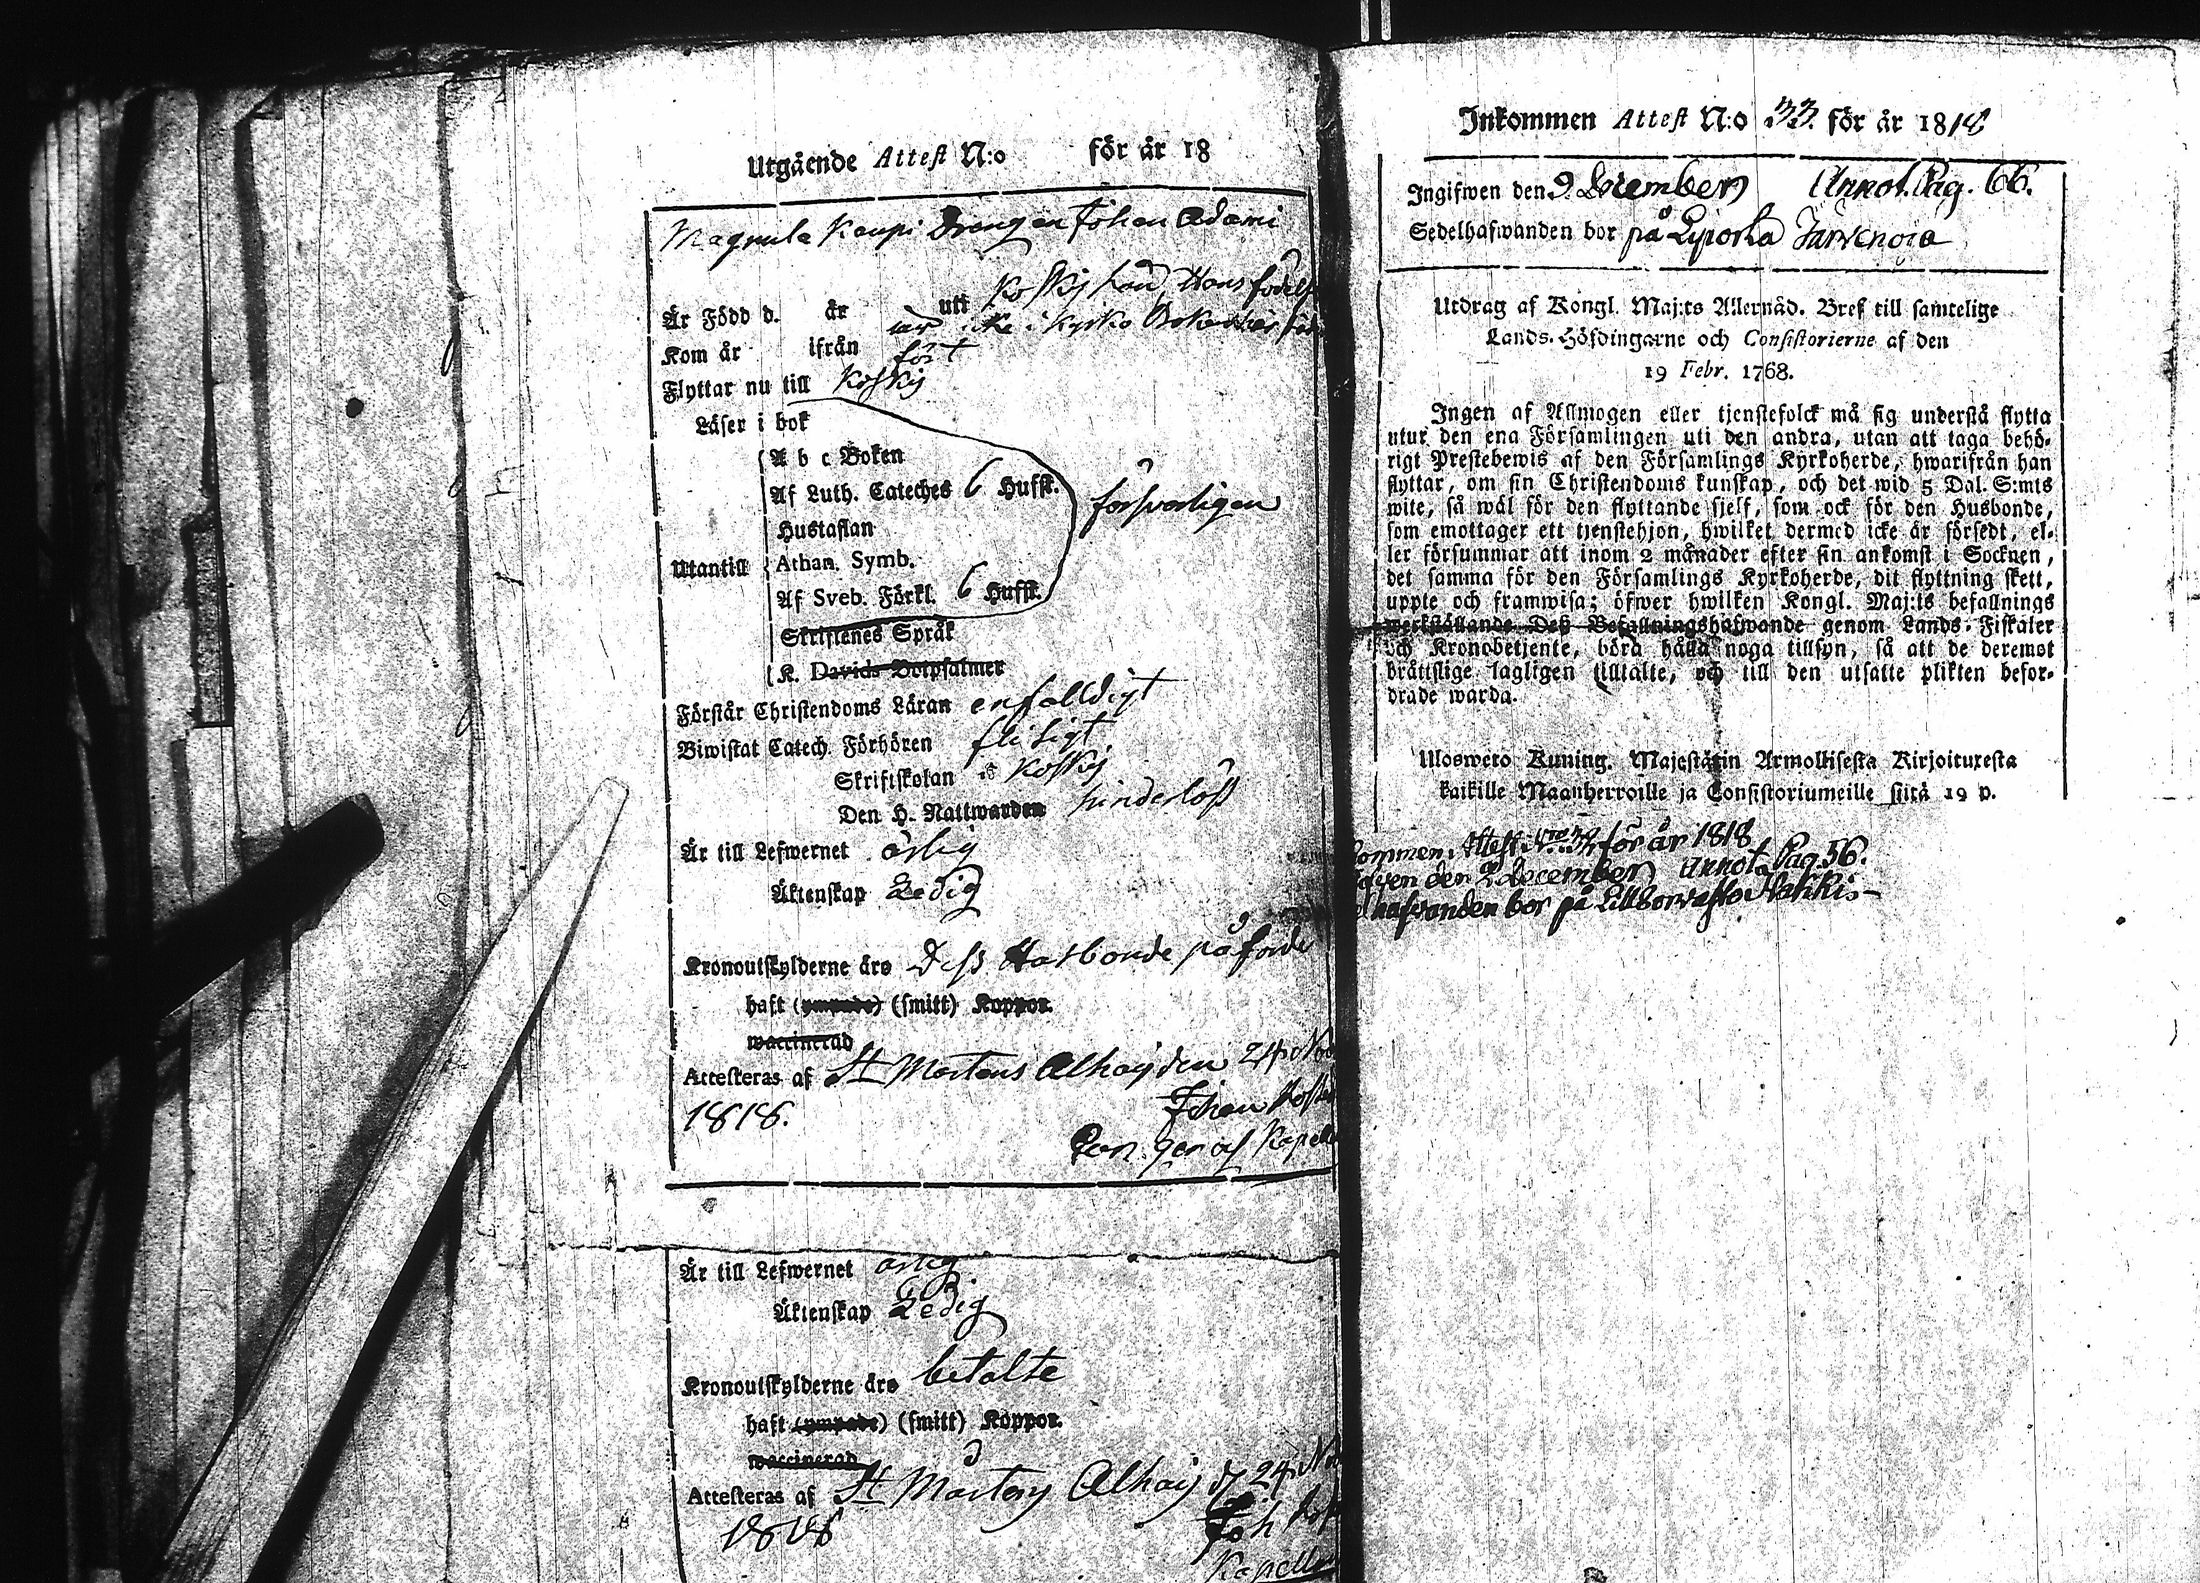 Utgående Attest N:o för år 18
Magnula Kaupi Drengen Johan Adami
Är Född d. år uti Koskis hans födelse
är icke i Kyrko Boken
Kom år ifrån fört
Flyttar nu till Koskis
Läser i bok
A b c Boken
Af Luth. Cateches 6 Hufst. försvarligen
Hustaflan
Utantill Athan. Symb.
Af Sveb. Förkl. 6 Hufst.
Skriftenes Språk
K. Davids Botpsalmer
Förstår Christendoms Läran enfalldigt
Biwistat Catech. Förhören flitigt
Skriftskolan i Koskis
Den H. Nattwarden hinderlöst
Är till Lefwernet ärlig
Äktenskap Ledig
Kronoutskylderne äro Dess Husbonde påförde
haft (ympade) (smitt) Koppor.
waccinerad
Attesteras af St Mårtens Alhaij den 24 Nov
1818. Johan
Kapell
Är till Lefwernet ärlig
Äktenskap Ledig
Kronoutskylderne äro betalte
haft (ympade) (smitt) Koppor.
waccinerad
Attesteras af St Mårtens Alhaij d 24 Nov
1818 Joh
Kapellan
Inkommen Attest N:o 33. för år 1818
Ingifwen den 9 December Annot. Pag. 66.
Sedelhafwanden bor på Liporla Järvenoja
Utdrag af Kongl. Maj:ts Allernåd. Bref till samtelige
Lands-Höfdingarne och Consistorierne af den
19 Febr. 1768.
Ingen af Allmogen eller tjenstefolck må sig understå flytta
utur den ena Församlingen uti den andra, utan att taga behö-
rigt Prestebewis af den Församlings Kyrkoherde, hwarifrån han
flyttar, om sin Christendoms kunskap, och det wid 5 Dal. S:mts
wite, så wäl för den flyttande sjelf, som ock för den Husbonde,
som emottager ett tjenstehjon, hwilket dermed icke är försedt, el-
ler försummar att inom 2 månader efter sin ankomst i Socknen,
det samma för den Församlings Kyrkoherde, dit flyttning skett,
uppte och framwisa; öfwer hwilken Kongl. Maj:ts befallnings
werkställande Deß Befallningshafwande genom Lands-Fiskaler
och Kronobetjente, böra hålla noga tillsyn, så att de deremot
bråttslige lagligen tilltalte, och till den utsatte plikten befor-
drade warda.
Uloswero Kuning. Majestätin Armollisesta Kirjoituxesta
kaikille Maanherroille ja Consistoriumeille siitä 19 p.
ommen Attest No 32 för år 1818
ifven den 2 December Annot. Pag. 56.
elhafvanden bor på Lillsorvasto Hakkis